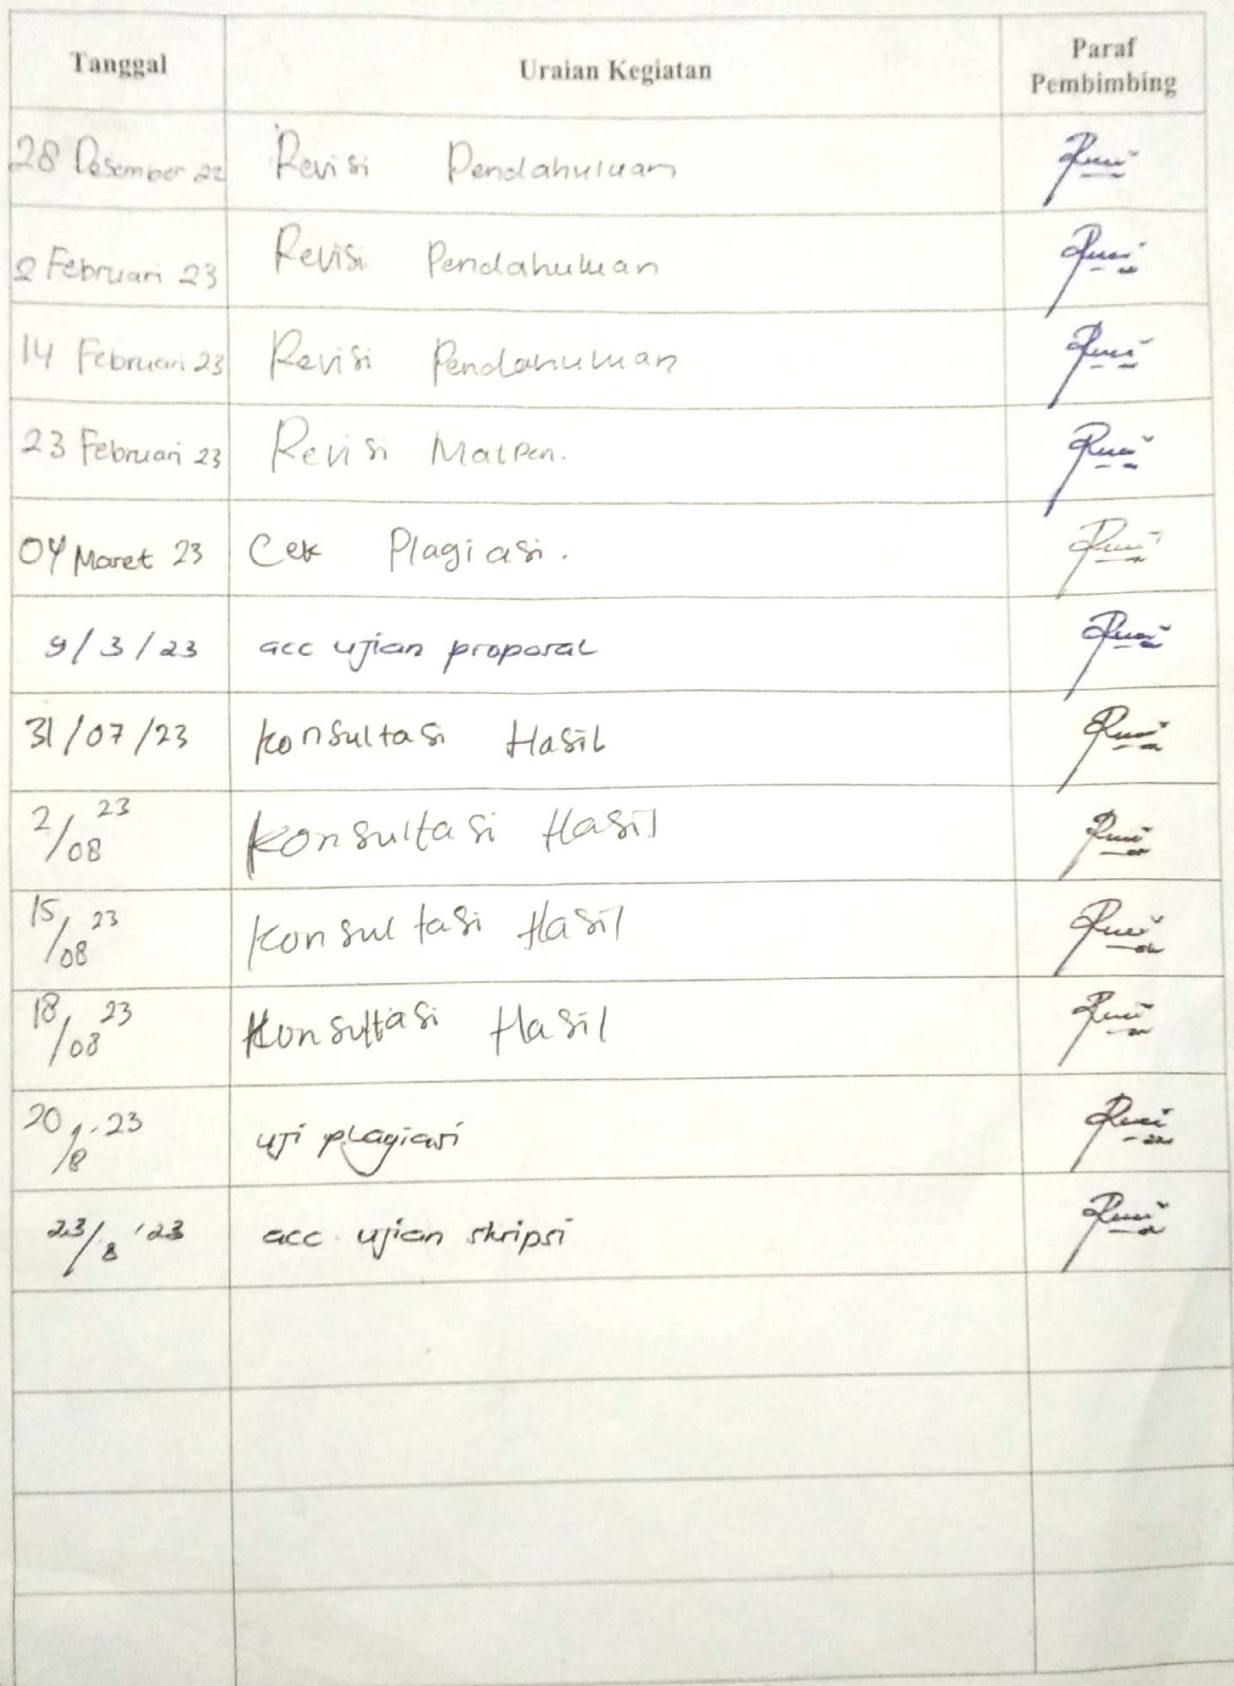 Tanggal Uraian Kegiatan Paraf Pembimbing
28 Desember 22 Revisi Pendahuluan
2 Februari 23 Revisi Pendahuluan
14 Februari 23 Revisi Pendahuluan
23 Februari 23 Revisi Matpen.
04 Maret 23 Cek Plagiasi.
9/3/23 acc ujian proposal
31/07/23 Konsultasi Hasil
2/08 23 Konsultasi Hasil
15/08 23 Konsultasi Hasil
18/08 23 Konsultasi Hasil
20/8 .23 uji plagiasi
23/8 '23 acc ujian skripsi